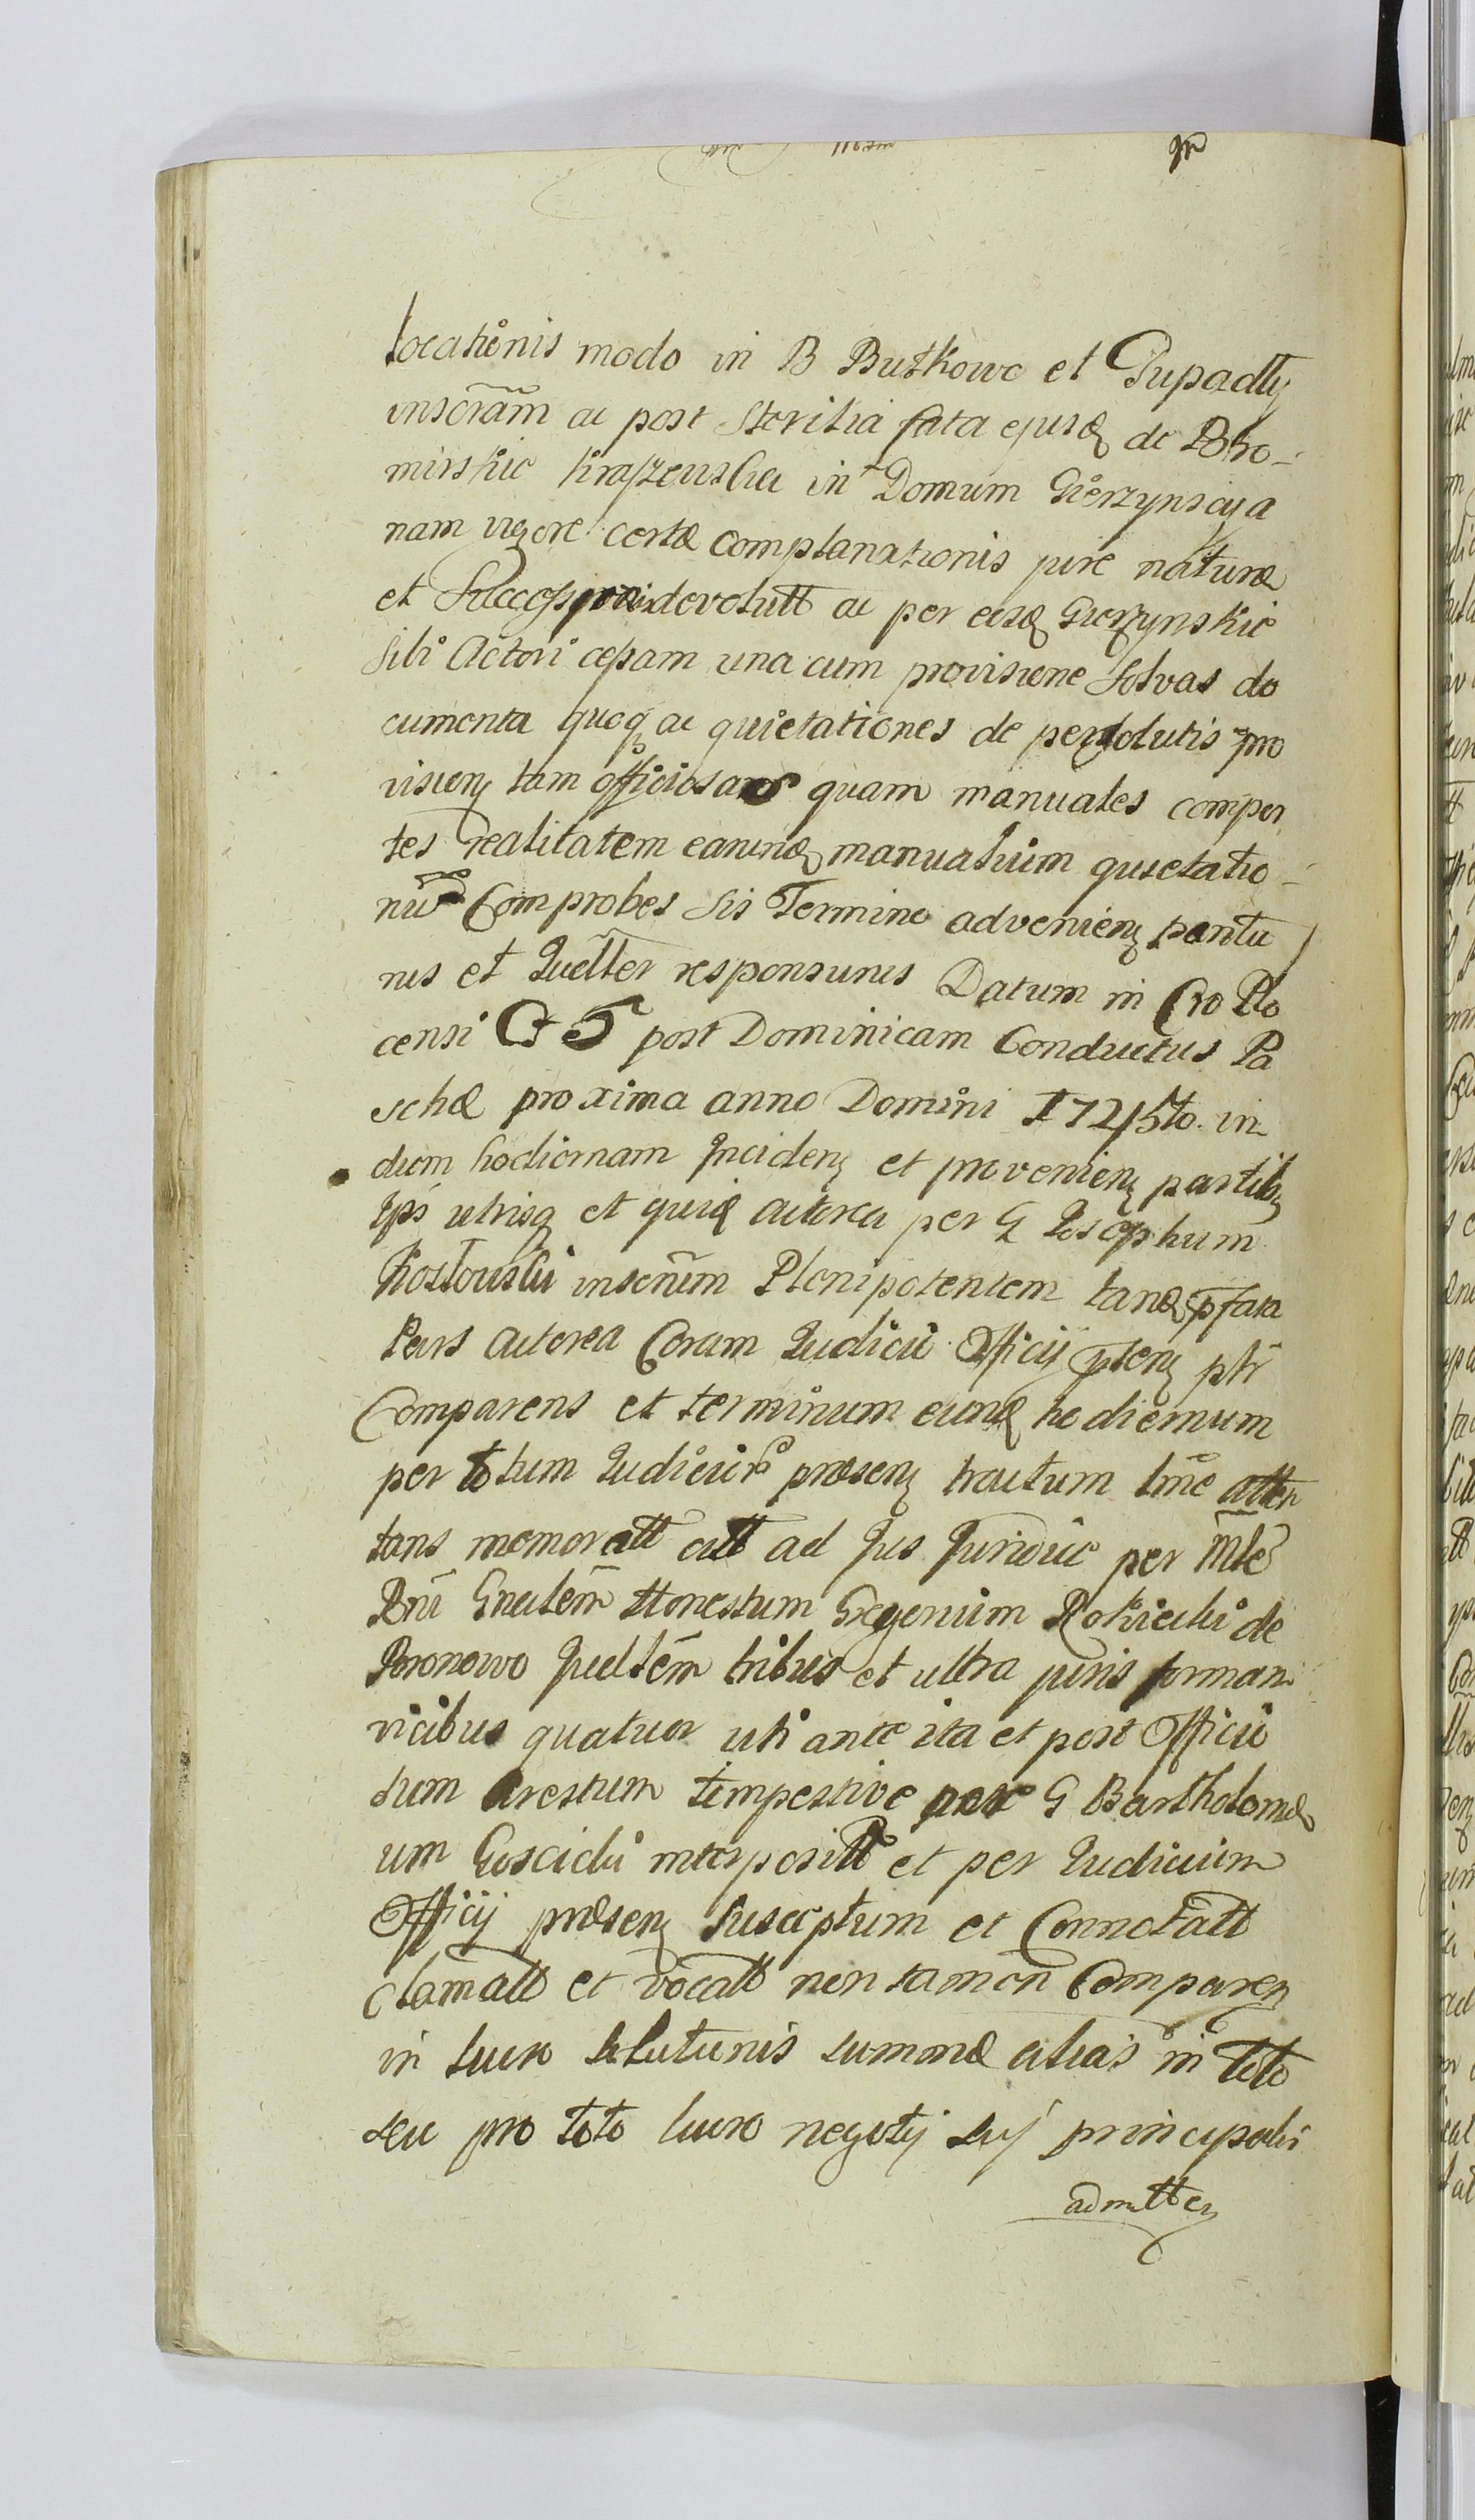 locationis modo in B Butkowo et Gupadly
inscram ac post sterilia fata ejusd de Dobro-
mirskie Kraszewska in Domum Gierzynscya
nam vigore certæ complanationis jure naturæ
et devolutt ac per eosd Gierzynskie
sibi Actori cessam una cum provisione solvas do
cumenta quoq ac quietationes de persolutis pro
vision tam officiosas quam manuales compor
tes realitatem earund manualium quietatio-
nu Comprobes sis Termino advenien paritu
rus et Juditter responsurus Datum in Cro Plo
censi post Dominicam Conductus Pa
schæ proxima anno Domini 1745to. in
diem hodiernam Inciden et provenien partibq
Ipsis utrisq et quid actorea per G Josephum
Kostowski insertum Plenipotentem tand pfata
Pars actorea Coram Judicii Officij psten pltr
Comparens et terminum eund hodiernum
per totum Judicium præsen tractum tme atten
tans memoratt citt ad Jus Juridice per Mle
Dni Gnalem Honestum
Juditem tribus et ultra juris forman
vicibus quatuor uti ante ita et post Officii
sum arestum tempestive per G Bartholomæ
um Goscicki interpositt et per Judicium
Officij præsen susceptum et Connotatt
clamatt et vocatt non tamen Comparen
in lucro solutionis summæ alias in toto
seu pro toto lucro negotij sui principalis
admitten